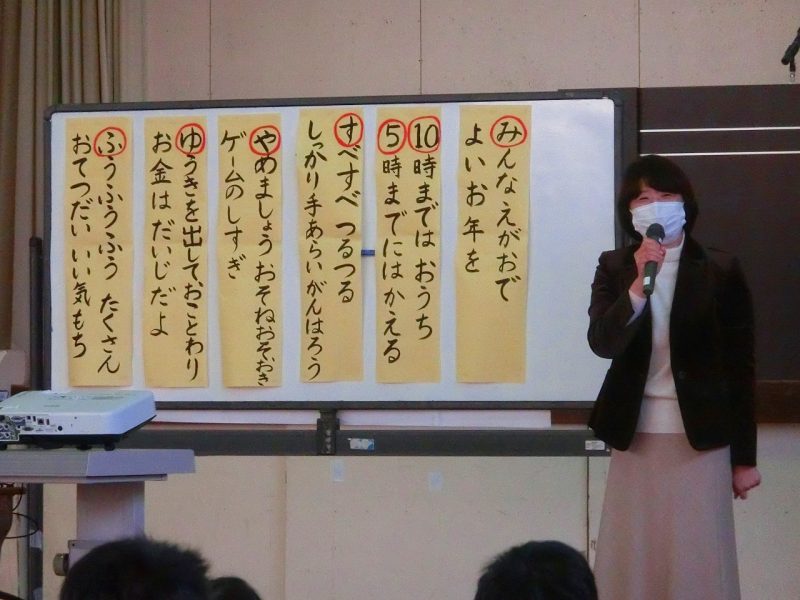 ふうふうふう たくさん
おてつだい いい気もち
ゆうきを出して、おことわり
お金はだいじだよ
やめましょう おそねおそおき
ゲームのしすぎ
すべすべ つるつる
しっかり手あらいがんばろう
10時までは おうち
5時までにはかえる
みんなえがおで
よいお年を